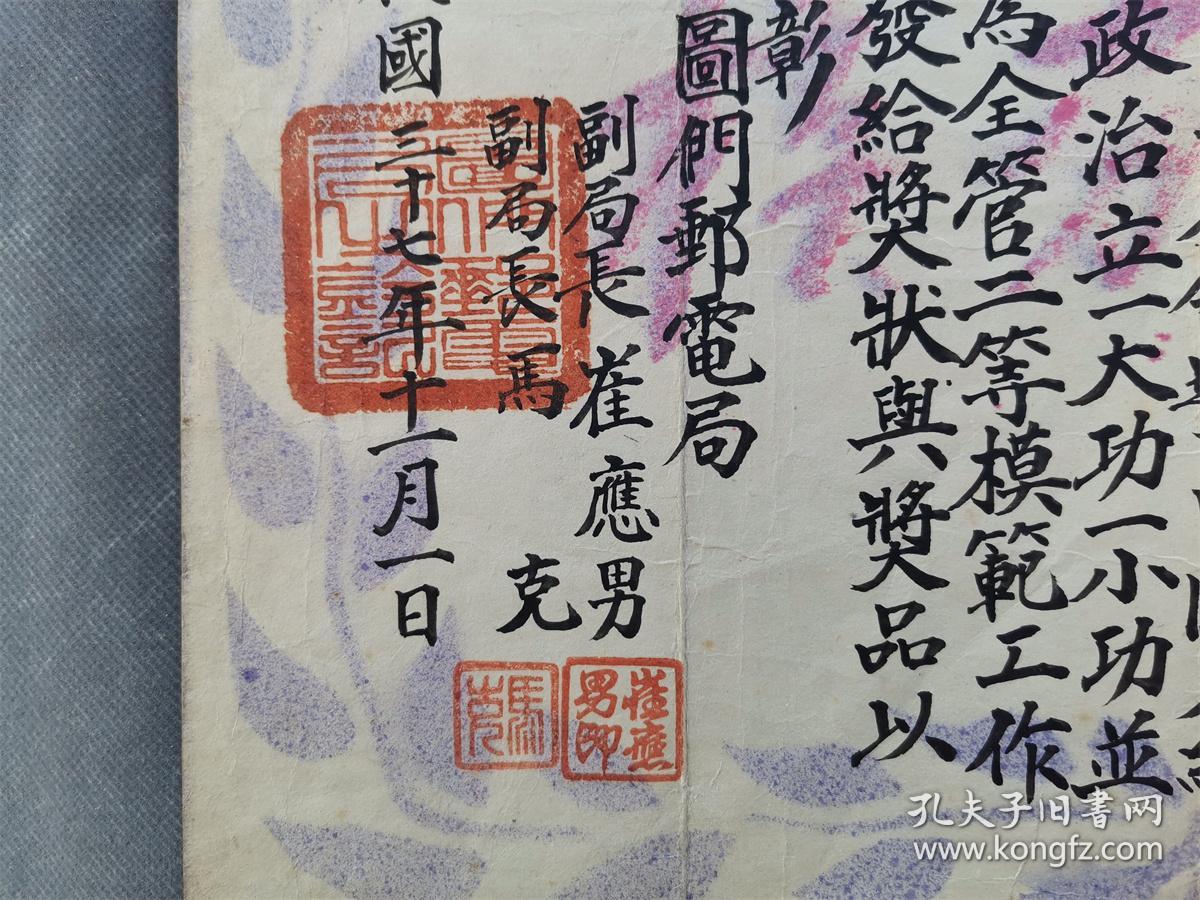 政治立一大功一小功並
為全管二等模範工作
發給獎狀與獎品以
彰
圖們郵電局
副局長崔應男
副局長馬克
國三十七年十一月一日
崔應男印
馬克
孔夫子旧书网
www.kongfz.com